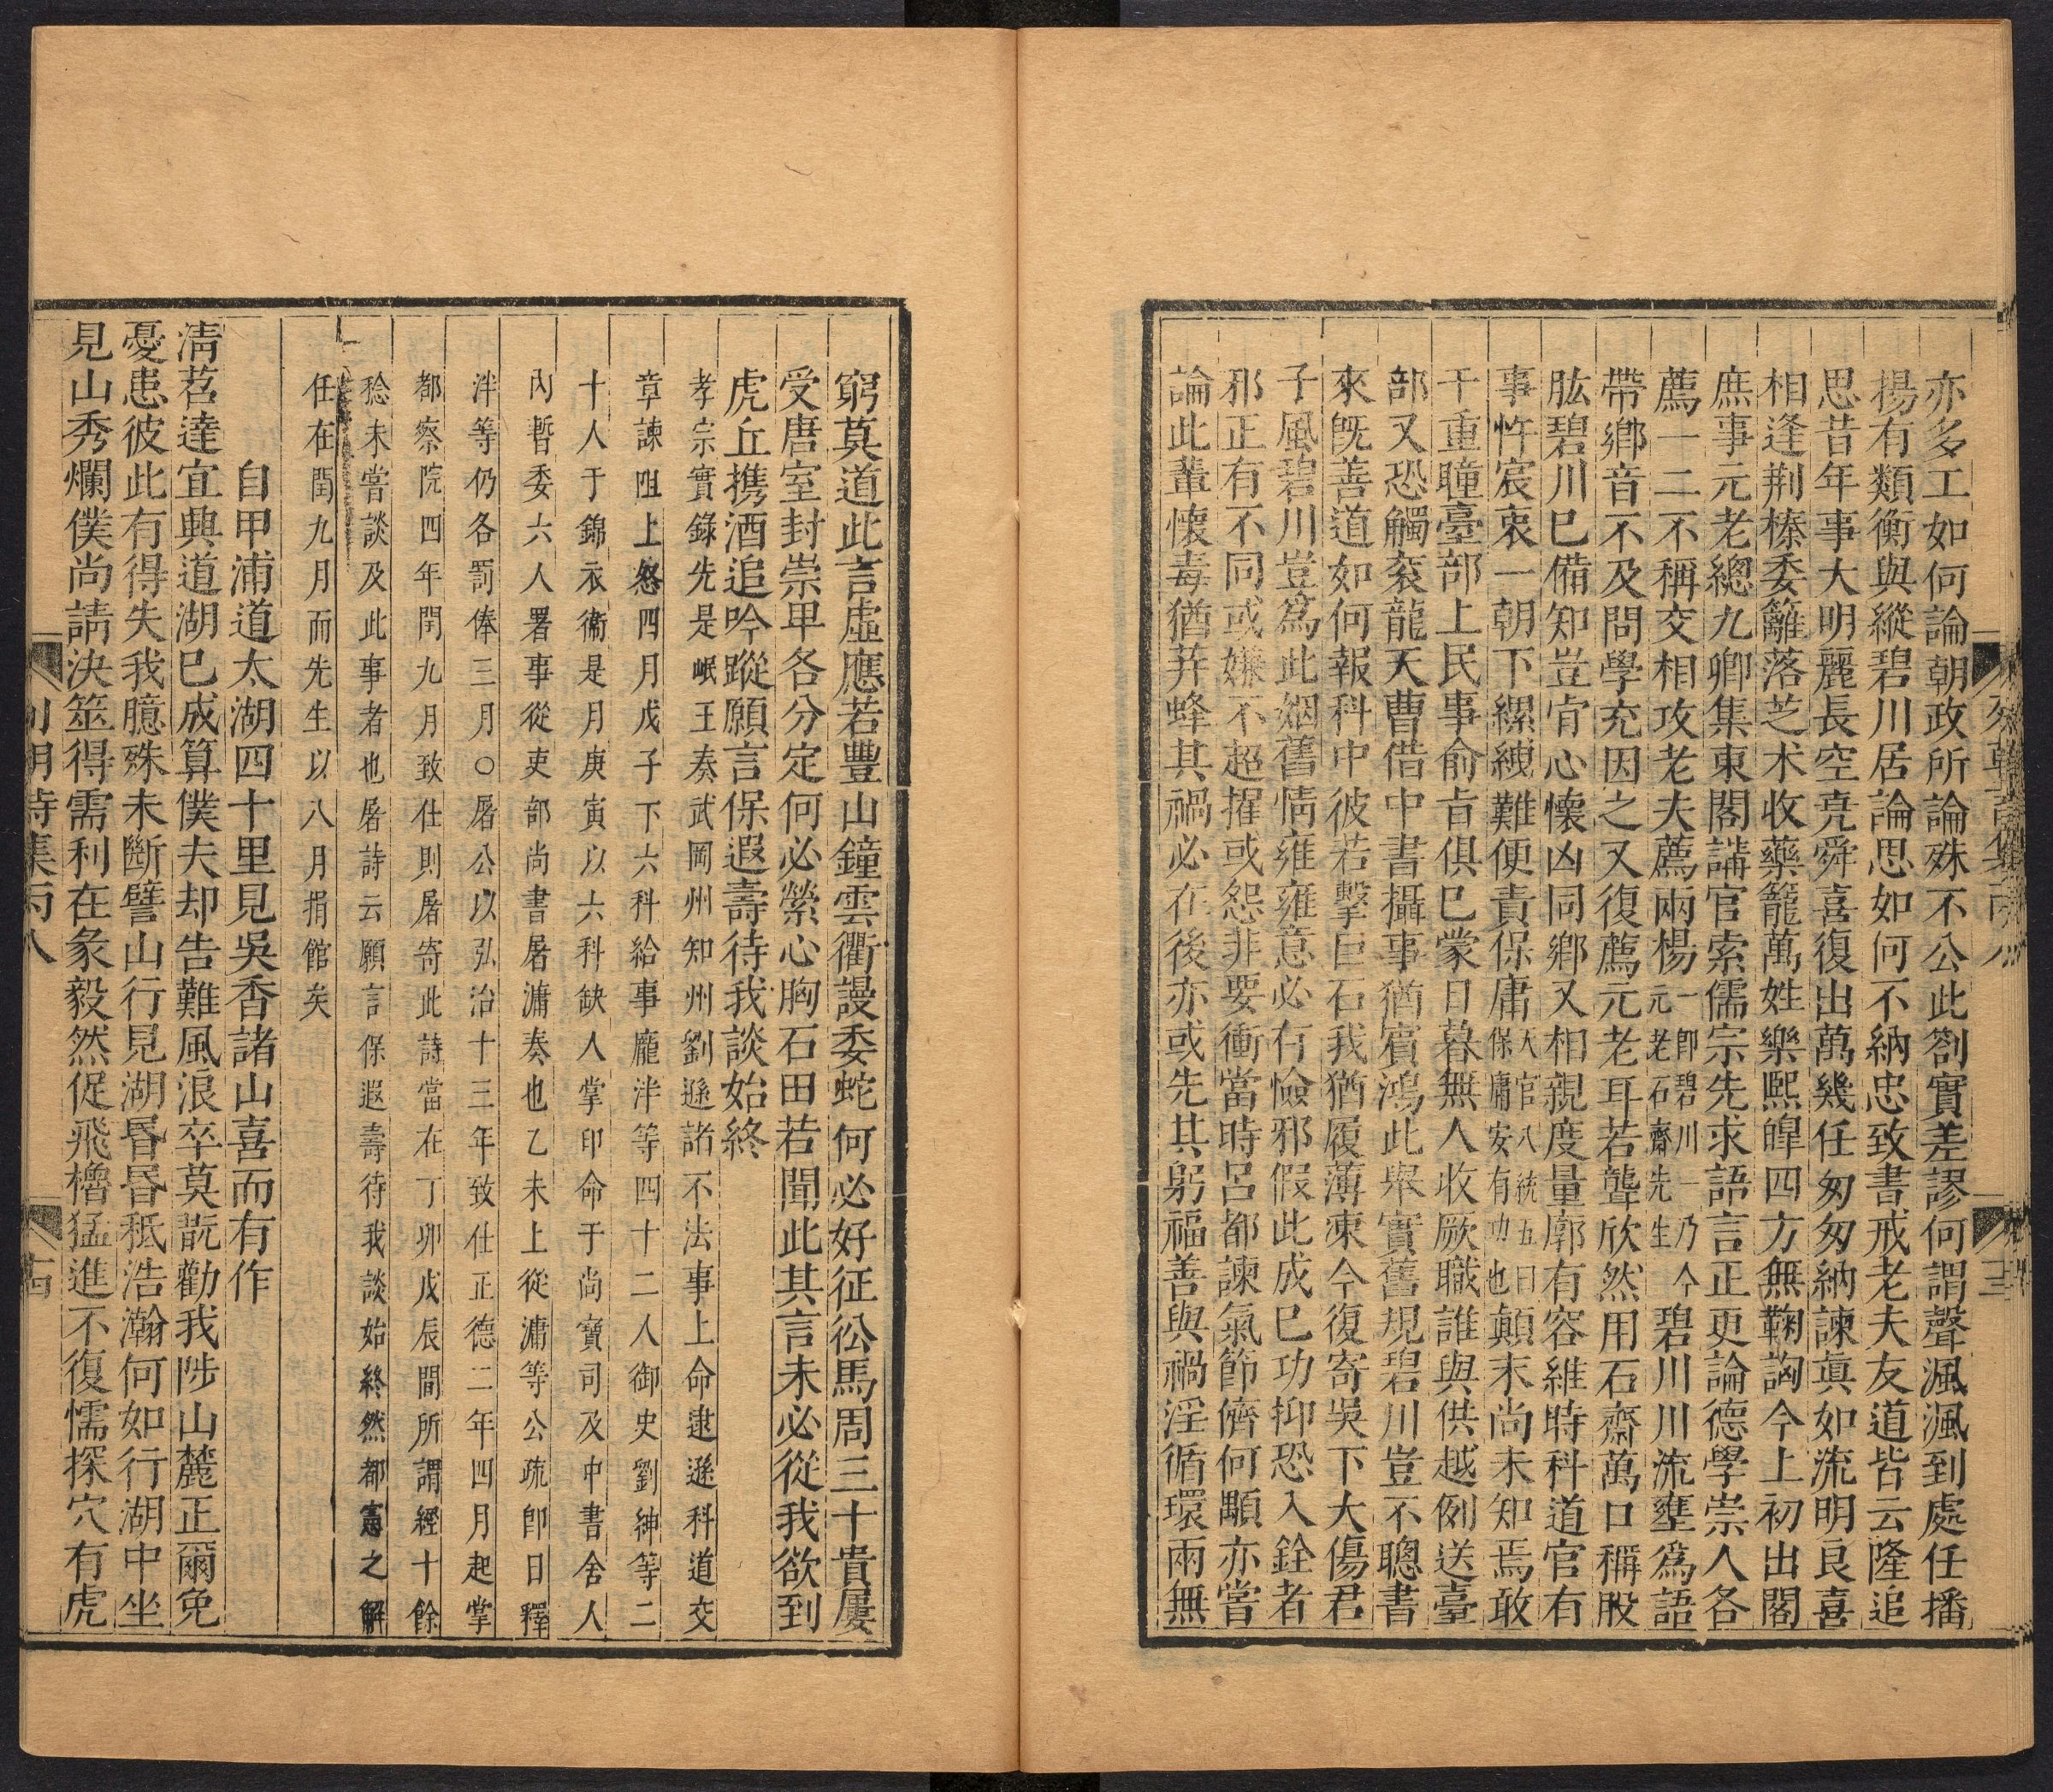 亦多工如何論朝政所論殊不公此劄實差謬何謂聲渢渢到處任播
揚有類衡與縱碧川居論思如何不納忠致書戒老夫友道皆云隆追
思昔年事大明麗長空堯舜喜復出萬幾任匆匆納諫真如流明良喜
相逢荆榛委籬落芝术收藥籠萬姓樂熙皡四方無鞠訩今上初出閣
庶事元老總九卿集東閣講官索儒宗先求語言正更論德學崇人各
薦一二不稱交相攻老夫薦兩楊一卽碧川一乃今元老石齋先生碧川川流壅爲語
帶鄉音不及問學充因之又復薦元老耳若聾欣然用石齋萬口稱股
肱碧川已備知豈肯心懷凶同鄉又相親度量廓有容維時科道官有
事忤宸衷一朝下縲絏難便責保庸天官八統五曰保庸安有功也顛末尚未知焉敢
干重瞳臺部上民事俞㫖俱已蒙日暮無人收厥職誰與供越例送臺
部又恐觸衮龍天曹借中書攝事猶賓鴻此舉實舊規碧川豈不聰書
來旣善道如何報科中彼若擊巨石我猶履薄凍今復寄吳下大傷君
子風碧川豈爲此姻舊情雍雍意必有憸邪假此成己功抑恐入銓者
邪正有不同或嫌不超擢或怨非要衝當時呂都諫氣節儕何顒亦嘗
論此輩懷毒猶荓蜂其禍必在後亦或先其躬福善與禍淫循環兩無
窮莫道此言虛應若豐山鐘雲衢謾委蛇何必好征伀馬周三十貴屢
受唐室封崇甲各分定何必縈心胸石田若聞此其言未必從我欲到
虎丘携酒追吟蹤願言保遐壽待我談始終
孝宗實錄先是岷王奏武岡州知州劉遜諸不法事上命逮遜科道交
章諫阻上怒四月戊子下六科給事龐泮等四十二人御史劉紳等二
十人于錦衣衞是月庚寅以六科缺人掌印命于尚寶司及中書舍人
內暫委六人署事從吏部尚書屠滽奏也乙未上從滽等公疏卽日釋
泮等仍各罰俸三月○屠公以弘治十三年致仕正德二年四月起掌
都察院四年閏九月致仕則屠寄此詩當在丁卯戊辰間所謂經十餘
稔未嘗談及此事者也屠詩云願言保遐壽待我談始終然都憲之解
任在閏九月而先生以八月捐館矣
自甲浦道太湖四十里見吳香諸山喜而有作
淸苕達宜興道湖已成算僕夫却告難風浪卒莫翫勸我陟山麓正爾免
憂患彼此有得失我臆殊未斷譬山行見湖昬昬秪浩瀚何如行湖中坐
見山秀爛僕尚請決筮得需利在彖毅然促飛櫓猛進不復懦探穴有虎